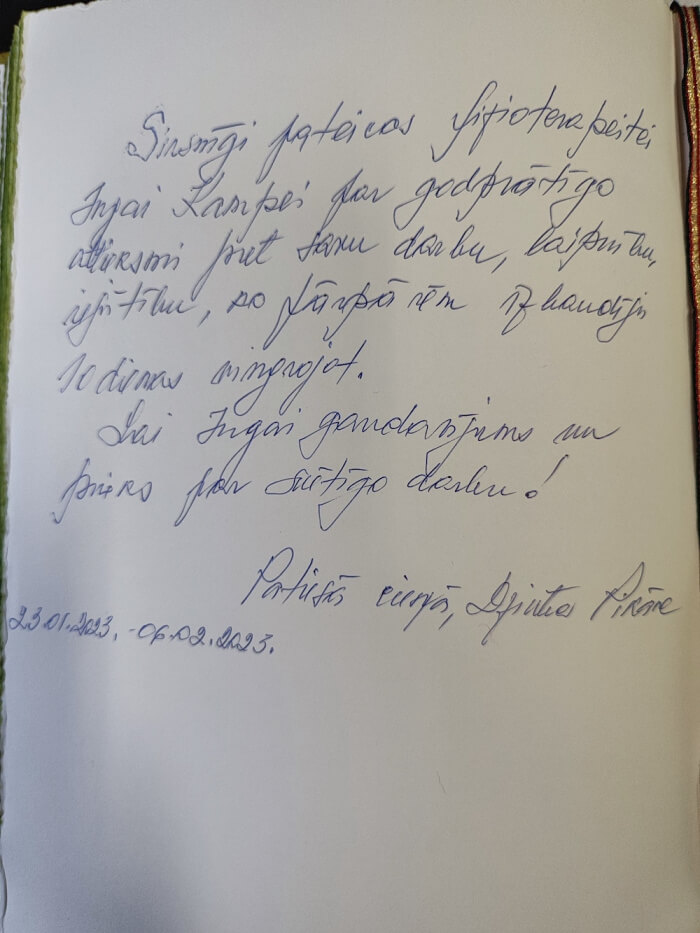 Sirsnīgi pateicos fizioterapeitei
Ingai Kampei par godprātīgo
attieksmi pret savu darbu, laipnību,
iejūtību, ko pārpārēm izbaudīju
10 dienas vingrojot.
Lai Ingai gandarījums un
prieks par sūtīgo darbu!
Patiesā cieņā, Dzintra Pikāne
23.01.2023. - 06.02.2023.